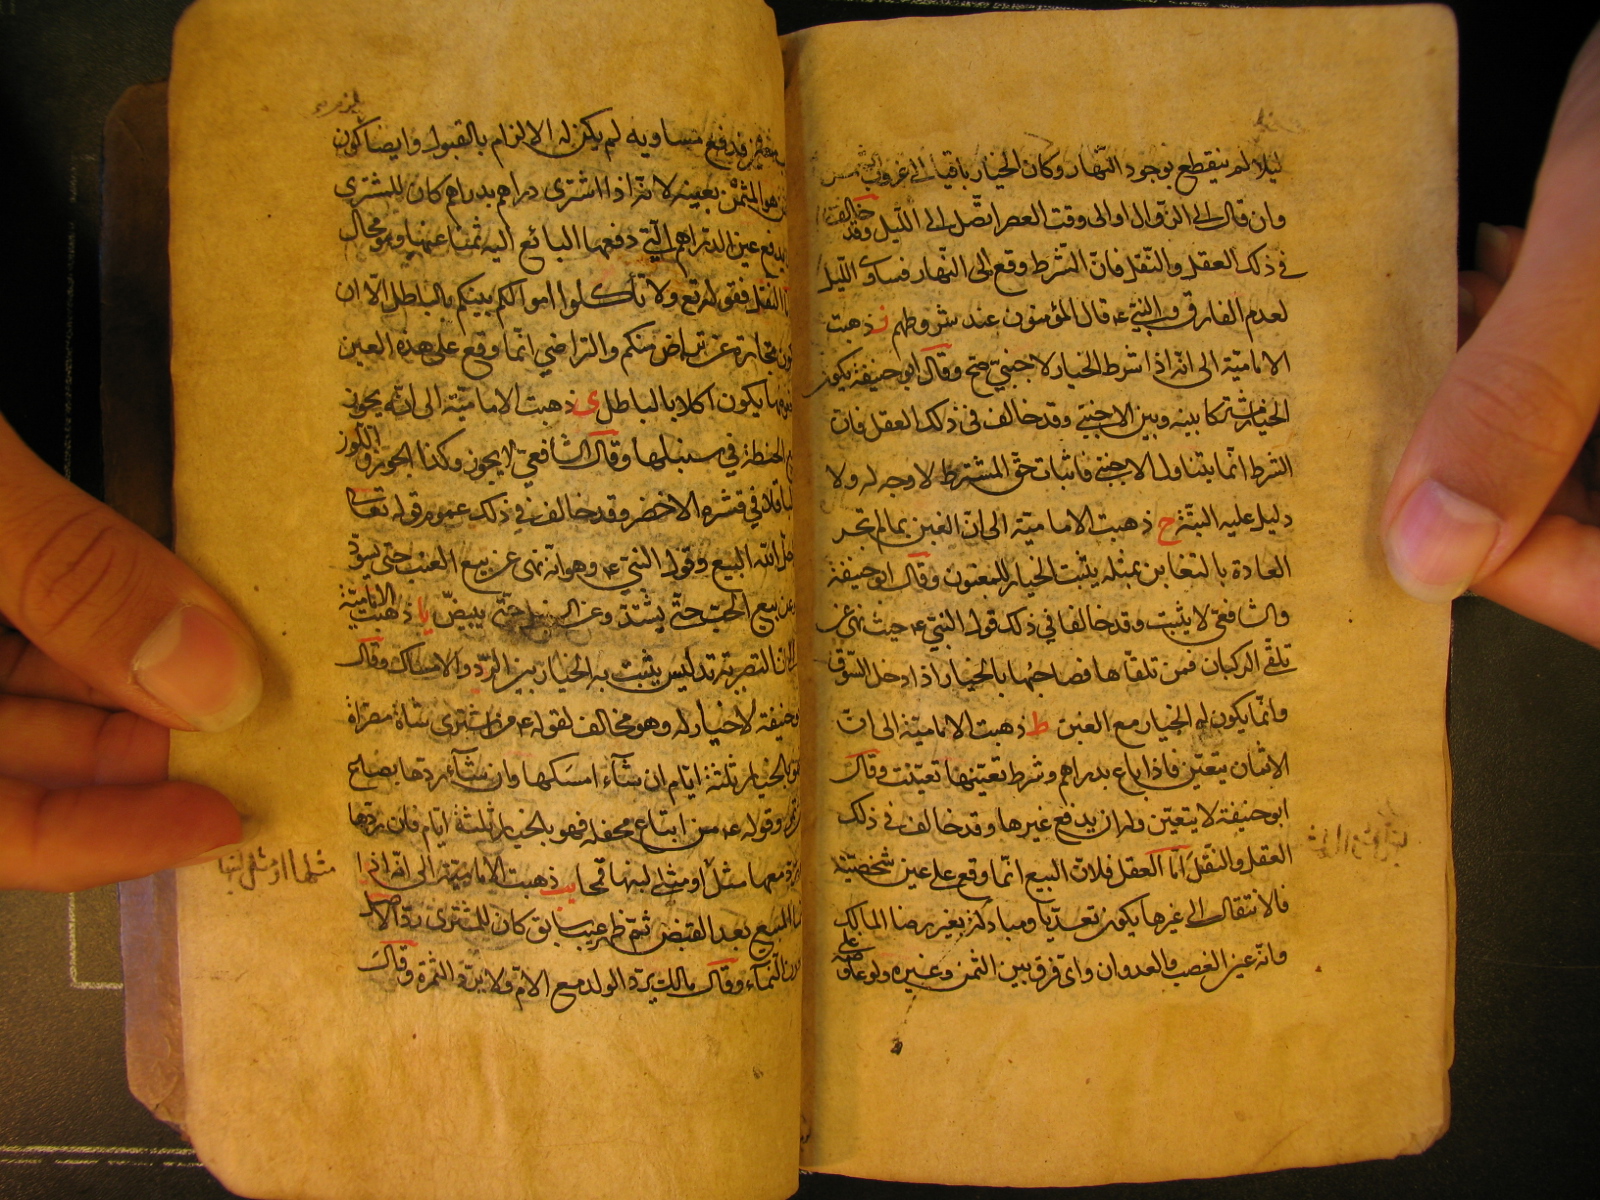 ليلا لم ينقطع بوجود النهار وكان الخيار باقيا الى غروب الشمس
وان قال الى الزوال او الى وقت العصر اتصل الى الليل وقد خالف
في ذلك العقل والنقل فان الشرط وقع الى النهار فساوى الليل
لعدم الفارق والنبي ع قال المؤمنون عند شروطهم ز ذهبت
الامامية الى انه اذا شرط الخيار لاجنبي صح وقال ابو حنيفة يكون
الخيار مشتركا بينه وبين الاجنبي وقد خالف في ذلك العقل فان
الشرط انما يتناول الاجنبي فاثبات حق المشترط لا وجه له ولا
دليل عليه البتة ح ذهبت الامامية الى ان الغبن بما لم تجر
العادة بالتغابن بمثله يثبت الخيار للمغبون وقال ابو حنيفة
والشافعي لا يثبت وقد خالفا في ذلك قول النبي ع حيث نهى عن
تلقي الركبان فمن تلقاها فصاحبها بالخيار اذا دخل السوق
وانما يكون له الخيار مع الغبن ط ذهبت الامامية الى ان
الاثمان يتعين فاذا باع بدراهم وشرط تعيينها تعينت وقال
ابو حنيفة لا يتعين وله ان يدفع غيرها وقد خالف في ذلك
العقل والنقل اما العقل فلان البيع انما وقع على عين شخصية
فالانتقال الى غيرها يكون تعديا ومبادلة بغير رضا المالك
وانه عين الغصب والعدوان واي فرق بين الثمن وغيره ولو عاوضه على
فدفع مساويه لم يكن له الالزام بالقبول وايضا كون
هو الثمن بعينه لانه اذا اشترى دراهم بدراهم كان للمشترى
يدفع عين الدراهم التي دفعها البائع اليه ثمنا عنها وهو محال
النقل فقوله تع ولا تأكلوا اموالكم بينكم بالباطل الا ان
تجارة عن تراض منكم والتراضي انما وقع على هذه العين
يكون اكلا بالباطل ى ذهبت الامامية الى انه يجوز
الحنطة في سنبلها وقال الشافعي لا يجوز وكذا الجوز واللوز
في قشره الاخضر وقد خالف في ذلك عموم قوله تعالى
الله البيع وقول النبي ع وهو انه نهى عن بيع العنب حتى يسود
وعن بيع الحب حتى يشتد وعن السنبل حتى يبيض يا ذهبت الامامية
الى ان التصرية تدليس يثبت به الخيار بين الرد والامساك وقال
حنيفة لا خيار له وهو مخالف لقوله ع من اشترى شاة مصراة
بالخيار ثلثة ايام ان شآء امسكها وان شآء ردها بصاع
تمر وقوله ع من ابتاع محفلة فهو بالخيار ثلثة ايام فان ردها
رد معها مثل او مثلي لبنها قمحا يب ذهبت الامامية الى انه اذا
المبيع بعد القبض ثم ظهر عيب سابق كان للمشترى رد الاصل
دون النمآء وقال مالك يرد الولد مع الام ولا يرد الثمرة وقال
مثلها او مثلي لبنها